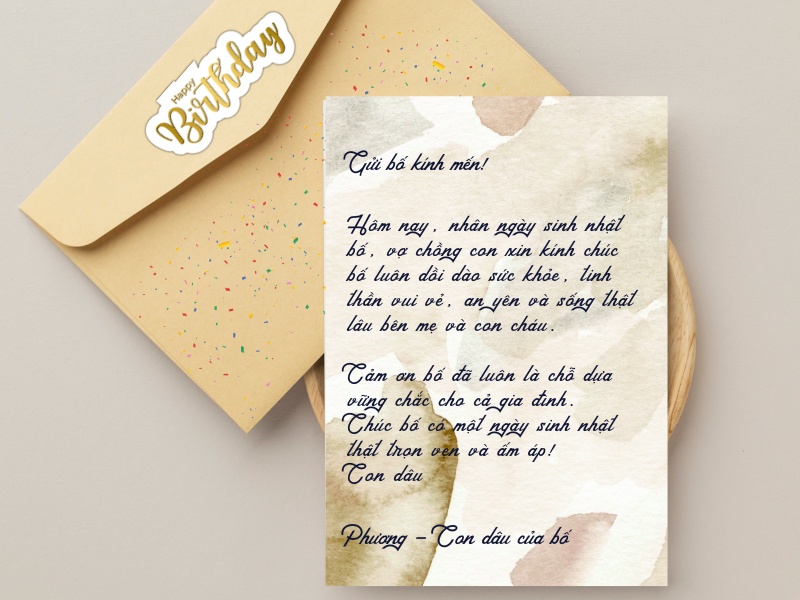 Happy
Birthday
Gửi bố kính mến!
Hôm nay, nhân ngày sinh nhật
bố, vợ chồng con xin kính chúc
bố luôn dồi dào sức khỏe, tinh
thần vui vẻ, an yên và sống thật
lâu bên mẹ và con cháu.
Cảm ơn bố đã luôn là chỗ dựa
vững chắc cho cả gia đình.
Chúc bố có một ngày sinh nhật
thật trọn vẹn và ấm áp!
Con dâu
Phương – Con dâu của bố